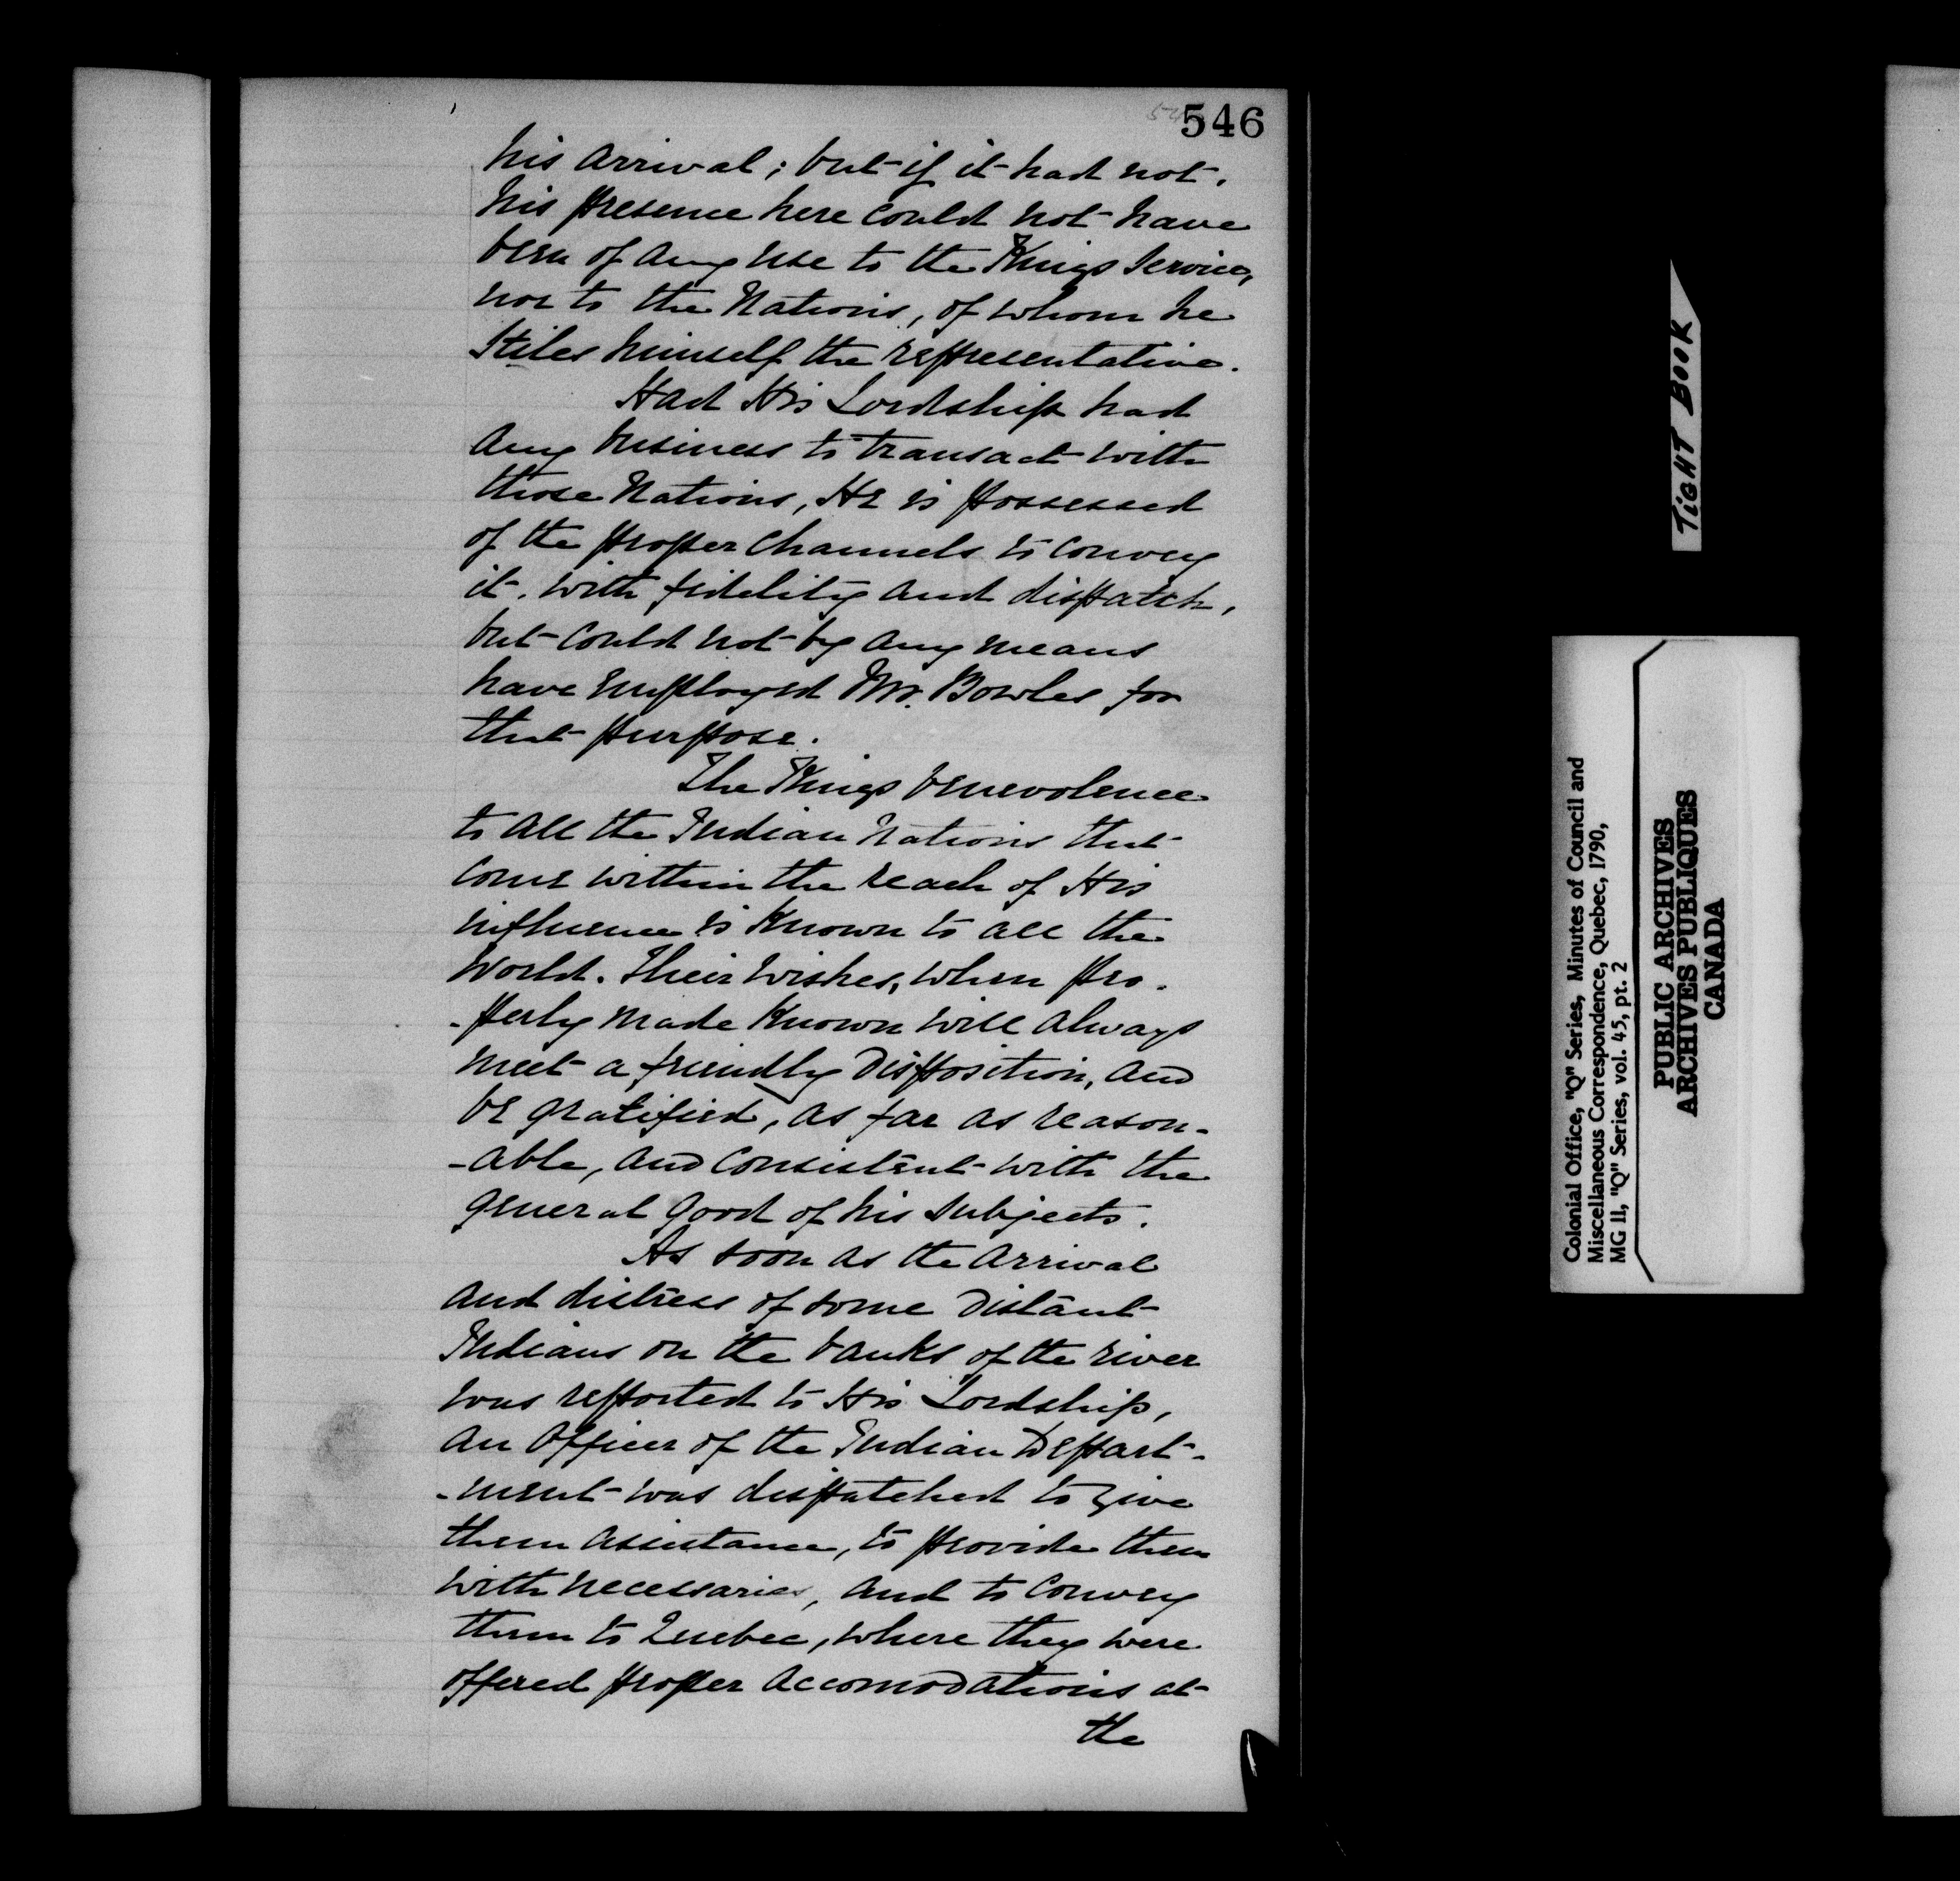 546
his arrival; but if it had not,
his presence here could not have
been of any use to the Kings Service,
nor to the Nations, of whom he
Stiles himself the representative.
Had His Lordship had
any business to transact with
those Nations, He is possessed
of the proper channels to convey
it, with fidelity and dispatch,
but could not by any means
have employed Mr. Bowles for
that purpose.
The Kings benevolence
to all the Indian Nations that
come within the reach of His
influence is known to all the
World. Their wishes, when pro-
-perly made known will always
meet a friendly disposition, and
be gratified, as far as reason-
-able, and consistent with the
general good of his subjects.
As soon as the arrival
and distress of some distant
Indians on the banks of the river
was reported to His Lordship,
an Officer of the Indian Depart-
-ment was dispatched to give
them assistance, to provide them
with necessaries, and to convey
them to Quebec, where they were
offered proper accomodations at
the
TIGHT BOOK
Colonial Office, "Q" Series, Minutes of Council and
Miscellaneous Correspondence, Quebec, 1790,
MG 11, "Q" Series, vol. 45, pt. 2
PUBLIC ARCHIVES
ARCHIVES PUBLIQUES
CANADA